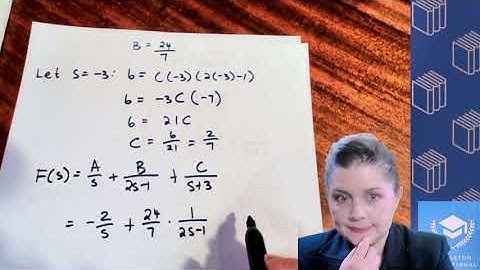 B = 24/7
Let s = -3: 6 = C(-3)(2(-3)-1)
6 = -3C(-7)
6 = 21C
C = 6/21 = 2/7
F(s) = A/s + B/2s-1 + C/s+3
= -2/s + 24/7 · 1/2s-1